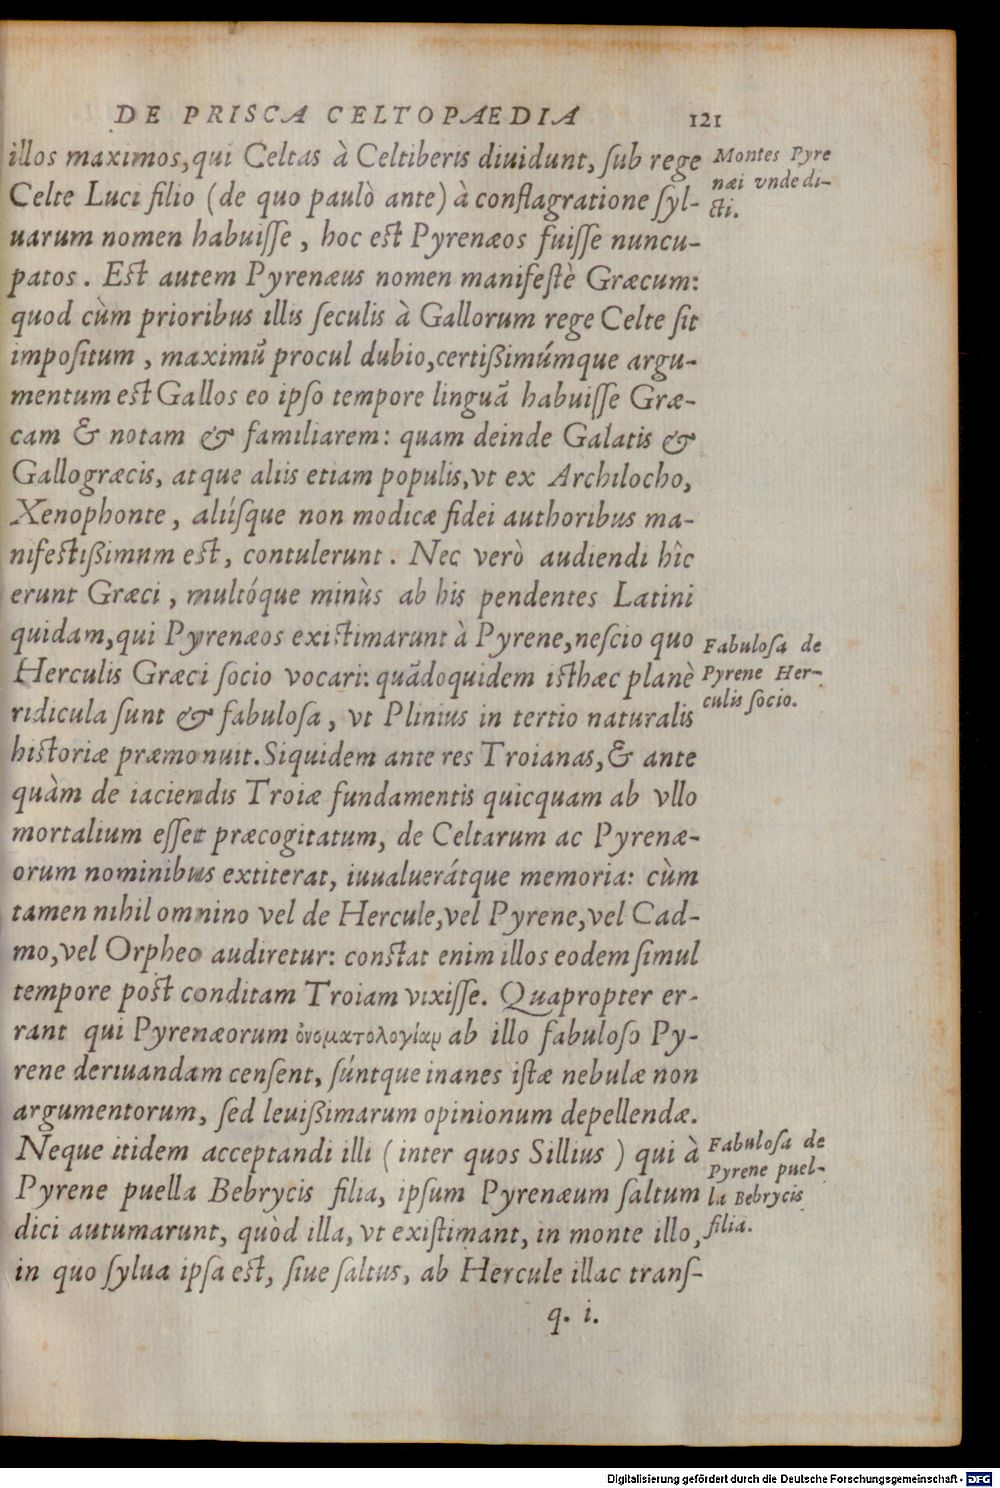 DE PRISCA CELTOPAEDIA 121
illos maximos, qui Celtas à Celtiberis diuidunt, ſub rege
Celte Luci filio (de quo paulò ante) à conflagratione ſyl-
uarum nomen habuiſſe, hoc est Pyrenæos fuiſſe nuncu-
patos. Est autem Pyrenæus nomen manifeſtè Græcum:
quod cùm prioribus illis ſeculis à Gallorum rege Celte ſit
impoſitum, maximũ procul dubio, certißimúmque argu-
mentum est Gallos eo ipſo tempore linguã habuiſſe Græ-
cam & notam & familiarem: quam deinde Galatis &
Gallogræcis, atque aliis etiam populis, vt ex Archilocho,
Xenophonte, aliíſque non modicæ fidei authoribus ma-
nifestißimum est, contulerunt. Nec verò audiendi hîc
erunt Græci, multóque minùs ab his pendentes Latini
quidam, qui Pyrenæos existimarunt à Pyrene, neſcio quo
Herculis Græci ſocio vocari: quãdoquidem isthæc planè
ridicula ſunt & fabuloſa, vt Plinius in tertio naturalis
historiæ præmonuit. Siquidem ante res Troianas, & ante
quàm de iaciendis Troiæ fundamentis quicquam ab vllo
mortalium eſſet præcogitatum, de Celtarum ac Pyrenæ-
orum nominibus extiterat, iuualuerátque memoria: cùm
tamen nihil omnino vel de Hercule, vel Pyrene, vel Cad-
mo, vel Orpheo audiretur: constat enim illos eodem ſimul
tempore post conditam Troiam vixiſſe. Quapropter er-
rant qui Pyrenæorum ὀνοματολογίαν ab illo fabuloſo Py-
rene deriuandam cenſent, ſúntque inanes iſtæ nebulæ non
argumentorum, ſed leuißimarum opinionum depellendæ.
Neque itidem acceptandi illi (inter quos Sillius) qui à
Pyrene puella Bebrycis filia, ipſum Pyrenæum ſaltum
dici autumarunt, quòd illa, vt exiſtimant, in monte illo,
in quo ſylua ipſa est, ſiue ſaltus, ab Hercule illac tranſ-
q. i.
Montes Pyre
næi vnde di-
cti.
Fabuloſa de
Pyrene Her-
culis ſocio.
Fabuloſa de
Pyrene puel-
la Bebrycis
filia.
Digitalisierung gefördert durch die Deutsche Forschungsgemeinschaft - DFG